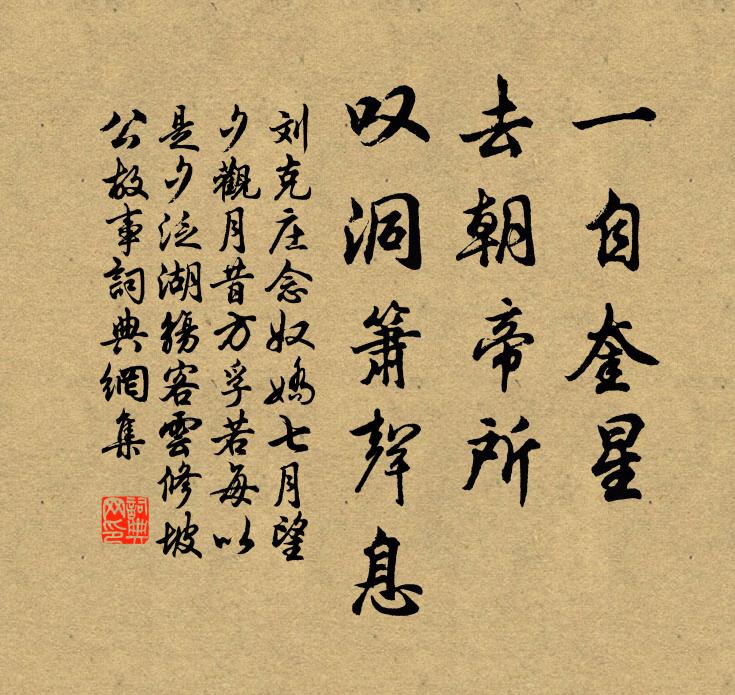 一自奎星
去朝帝所
叹洞箫聲息
刘克庄念奴嬌七月望
夕觀月昔方孚若每以
是夕泛湖觴客雲修坡
公故事詞典網集
詞典
网印